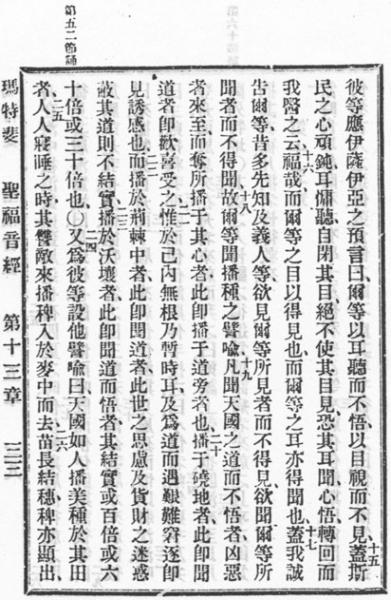 第五二節誦
彼等應伊薩伊亞之預言曰爾等以耳聽而不悟以目視而不見蓋斯十五
民之心頑鈍耳傭聽自閉其目絕不使其目見恐其耳聞心悟轉回而
我醫之云福哉而爾等之目以得見也而爾等之耳亦得聞也蓋我誠十六十七
告爾等昔多先知及義人等欲見爾等所見者而不得見欲聞爾等所
聞者而不得聞故爾等聞播種之譬喻凡聞天國之道而不悟者凶惡十八十九
者來至而奪所播于其心者此即播于道旁者也播于磽地者此即聞二十
道者即歡喜受之惟於己內無根乃暫時耳及為道而遇艱難窘逐即二一
見誘惑也而播於荊棘中者此即聞道者此世之思慮及貨財之迷惑二二
蔽其道則不結實播於沃壤者此即聞道而悟者其結實或百倍或六二三
十倍或三十倍也○又為彼等設他譬喻曰天國如人播美種於其田二四
者人人寢睡之時其讐敵來播稗入於麥中而去苗長結穗稗亦顯出二五二六
瑪特斐 聖福音經 第十三章 三三